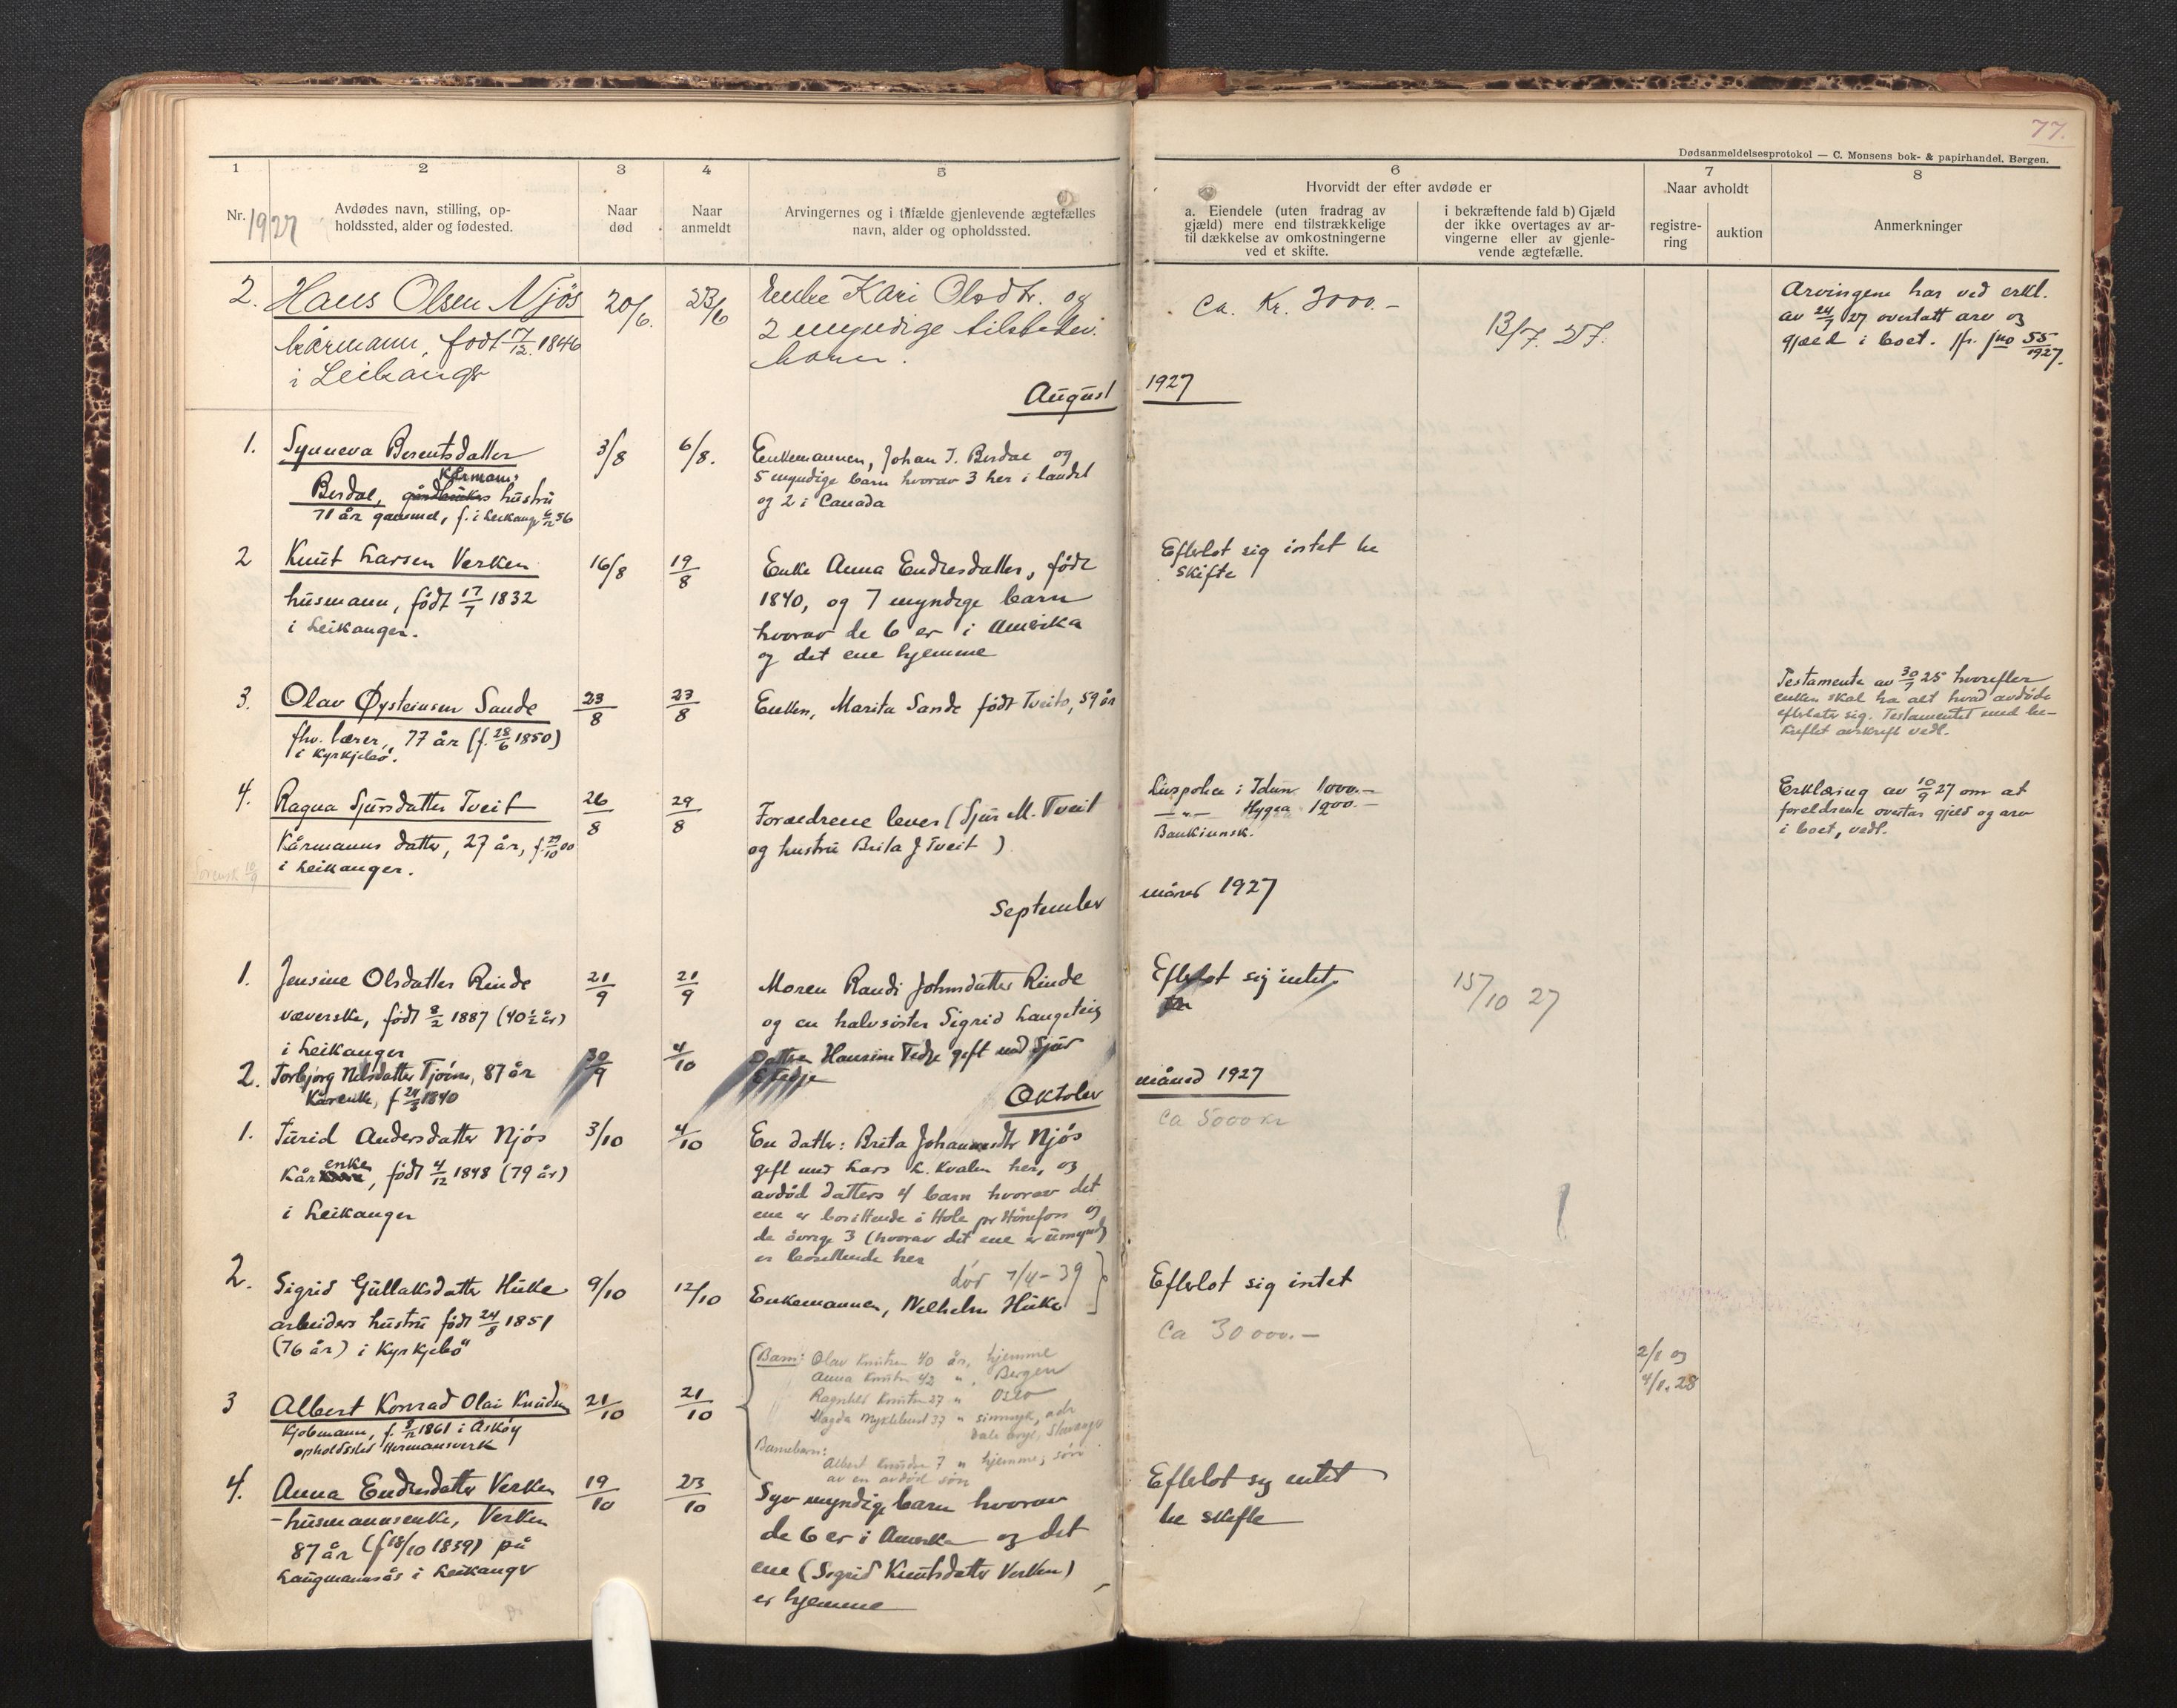 77.
Dødsanmeldelsesprotokol — C. Monsens bok- & papirhandel, Bergen.
1 2 3 4 5 6 7 8
Nr. 1927
Avdødes navn, stilling, op-
holdssted, alder og fødested.
Naar
død
Naar
anmeldt
Arvingernes og i tilfælde gjenlevende ægtefælles
navn, alder og opholdssted.
Hvorvidt der efter avdøde er
a. Eiendele (uten fradrag av
gjæld) mere end tilstrækkelige
til dækkelse av omkostningerne
ved et skifte.
i bekræftende fald b) Gjæld
der ikke overtages av ar-
vingerne eller av gjenle-
vende ægtefælle.
Naar avholdt
registre-
ring
auktion
Anmerkninger
2. Hans Olsen Njøs
kårmann, født 17/12. 1846
i Leikanger
20/6.
23/6
Enke Kari Olsdtr. og
2 myndige tilstedev.
barn.
Ca. Kr. 3000.-
13/7. 27.
Arvingene har ved erkl.
av 24/7 27 overtatt arv og
gjæld i boet. jfr. jno 55/1927.
August 1927
1. Synneva Berentsdatter
Kårmans
Berdal, gårdbrukers hustru
71 år gammel, f. i Leikanger 6/12 56
3/8
6/8.
Enkemannen, Johan J. Berdal og
5 myndige barn hvorav 3 her i landet
og 2 i Canada
2 Knut Larsen Verken
husmann, født 17/7 1832
i Leikanger.
16/8
19/8
Enke Anna Endresdatter, født
1840, og 7 myndige barn
hvorav de 6 er i Amerika
og det ene hjemme
Efterlot sig intet be
skifte
3. Olav Øysteinsen Sande
fhv. lærer, 77 år (f. 28/6 1850)
i Kyrkjebø.
23/8
27/8
Enken, Marita Sande født Tveito, 59 år
Testamente av 30/7 25 hvorefter
enken skal ha alt hvad avdøde
efterlater sig. Testamentet med be-
kreftet avskrift vedl.
4. Ragna Sjursdatter Tveit
Kårmanns datter, 27 år, f. 29/10 00
i Leikanger.
26/8
29/8
Forældrene lever (Sjur M. Tveit
og hustru Brita J Tveit)
Livspolice i Idun 1000.—
—"— Hygea 1900.—
Bankinnsk.
Erklæring av 10/9 27 om at
foreldrene overtar gjeld og arv
i boet, vedl.
September måned 1927
1. Jensine Olsdatter Rinde
væverske, født 8/2 1887 (40½ år)
i Leikanger
21/9
21/9
Moren Randi Johnsdatter Rinde
og en halvsøster Sigrid Langeteig
Efterlot sig intet.
15/10 27
2. Torbjørg Nilsdatter Tjoom, 87 år
Kårenke, f 24/3 1840
30/9
4/10
Datter Hansine Tedje gift med Sjur
Oktober måned 1927
1. Turid Andersdatter Njøs
enke
Kår, født 4/12 1848 (79 år)
i Leikanger
3/10
4/10
En datter: Brita Johannesdtr Njøs
gift med Lars L. Kvalen her, og
avdød datters 4 barn hvorav det
ene er bosittende i Hole pr Hønefoss og
de øvrige 3 (hvorav det ene er umynd)
er bosittende her
Ca 5000 kr
2. Sigrid Gullaksdatter Huke
arbeiders hustru født 24/8 1851
(76 år) i Kyrkjebø
9/10
12/10
død 7/4-39
Enkemannen, Wilhelm Huke
Efterlot sig intet
3 Albert Konrad Olai Knudsen
Kjøbmann, f. 3/12 1861 i Askøy
opholdssted Hermansverk
21/10
21/10
Barn: Olav Knutsen 40 år, hjemme
Anna Knutsen 42 ", Bergen
Ragnhild Knutsen 27 " Oslo
Magda Myklebust 37 " sinnsyk, adr
Dale asyl, Stavanger
Barnebarn:
Albert Knudsen 7 " hjemme, sønn
av en avdød sønn
Ca 30 000.—
2/1 og
4/1.28
4. Anna Endresdatter Verken
- husmannsenke, Verken
87 år (f 18/10 1839) på
Laugmannsås i Leikanger
19/10
23/10
Syv myndige barn hvorav
de 6 er i Amerika og det
ene (Sigrid Knutsdatter Verken)
er hjemme
Efterlot sig intet
be skifte